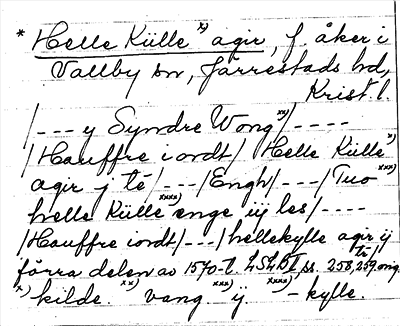 * Helle Külle x) agir, f. åker i
Vallby sn, Järrestads hd,
Krist. l.
/--- y Syndre Wong xx) /----
/Hauffre i ordt/ Helle Külle x)
agir j té/---/Engh/---/Tuo xxx)
helle Külle xxxx) enge iij les/----
/Hauffre iordt/---/hellekylle agir ij
té/
förra delen av 1570-t. LSLBT ss. 258, 259. orig.
x) kilde. xx) vang xxx) ij xxxx) -kylle.